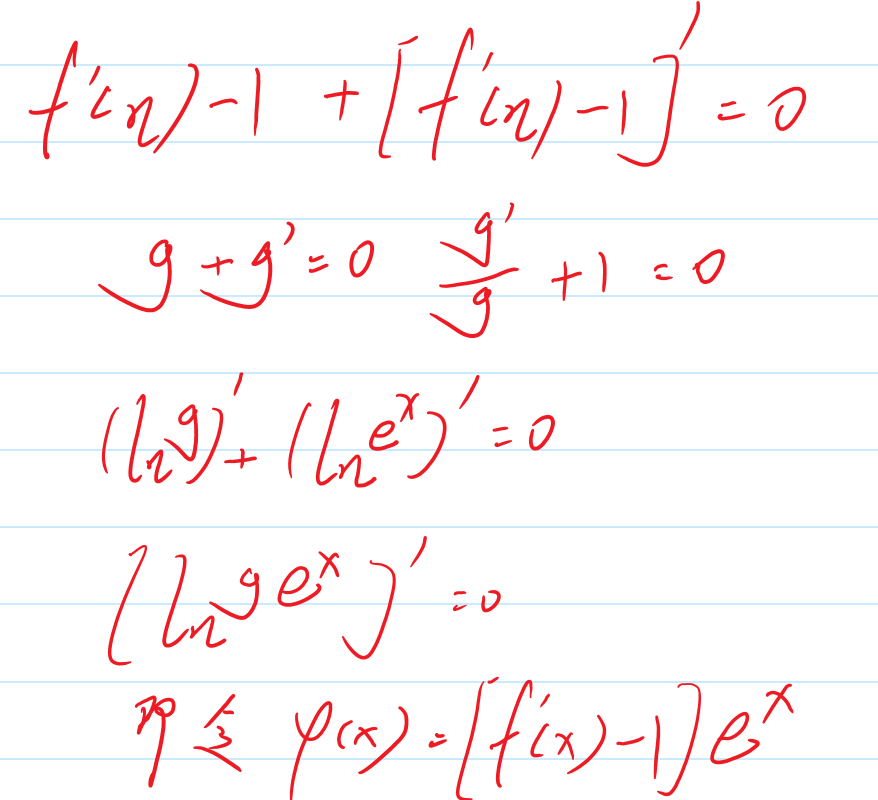 f'(η)-1 + [f'(η)-1]' = 0
g + g' = 0 g'/g + 1 = 0
(ln g)' + (ln e^x)' = 0
[ln g e^x]' = 0
即令 φ(x) = [f'(x)-1]e^x